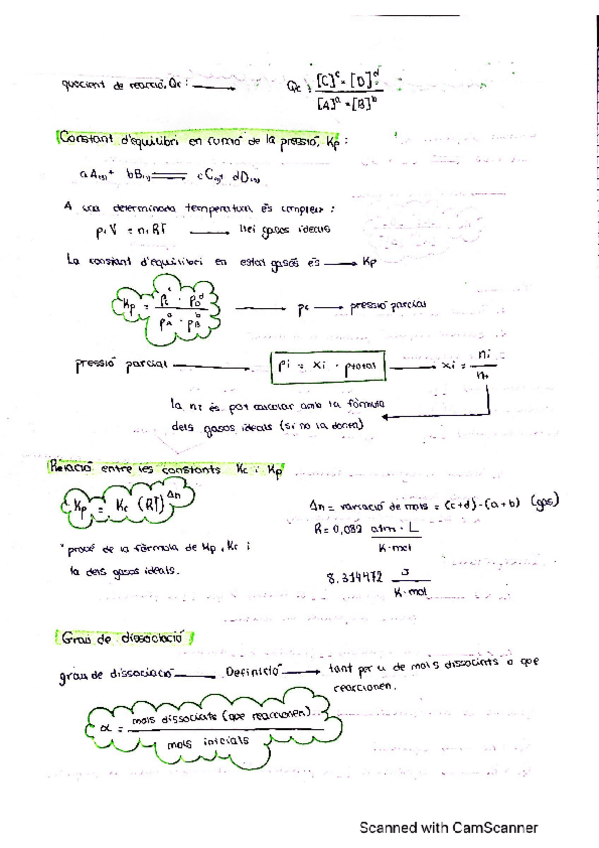 quocient de reacció, Qc : ⟶ Qc : [C]^c · [D]^d / [A]^a · [B]^b
Constant d'equilibri en funció de la pressió, Kp :
aA(g) + bB(g) ⇌ cC(g) + dD(g)
A una determinada temperatura, es compleix :
p.V = n.RT ⟶ llei gasos ideals
La constant d'equilibri en estat gasós és ⟶ Kp
Kp = pC^c · pD^d / pA^a · pB^b ⟶ pc ⟶ pressió parcial
pressió parcial ⟶ pi = xi · ptotal ⟶ xi = ni / nt
la nt es pot calcular amb la fórmula
dels gasos ideals (si no la donen)
Relació entre les constants Kc i Kp
Kp = Kc (RT)^Δn
Δn = variació de mols = (c+d)-(a+b) (gas)
R = 0,082 atm · L / K·mol
* prové de la fórmula de Kp, Kc i
la dels gasos ideals.
8.314472 J / K·mol
Grau de dissociació
grau de dissociació ⟶ Definició ⟶ tant per u de mols dissociats o que
reaccionen.
α = mols dissociats (que reaccionen) / mols inicials
Scanned with CamScanner